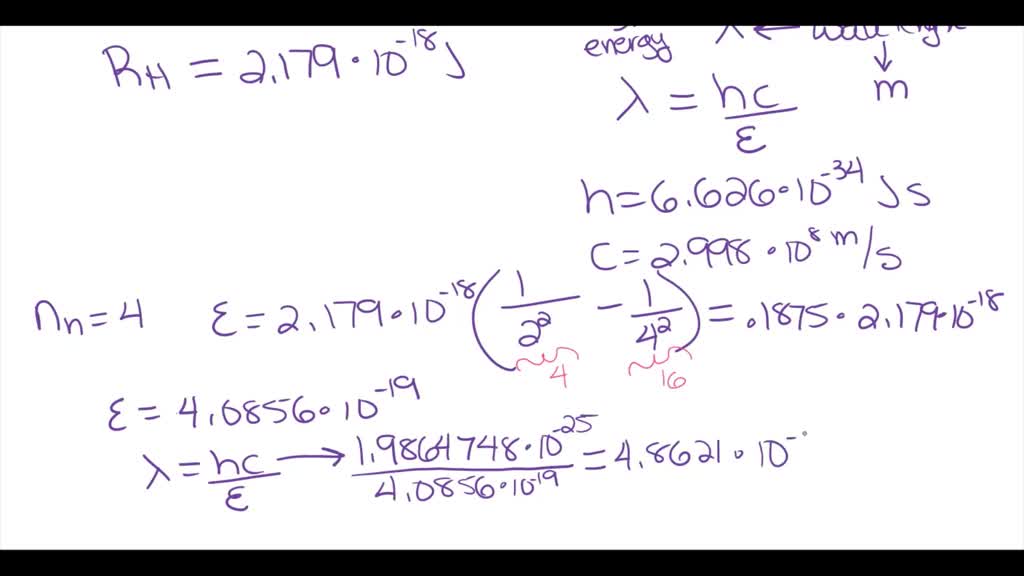 R_H = 2.179 · 10^-18 J
energy λ ←
↓
m
λ = hc/ε
h = 6.626 · 10^-34 J s
c = 2.998 · 10^8 m/s
n_n = 4 ε = 2.179 · 10^-18 (1/2^2 - 1/4^2) = .1875 · 2.179 · 10^-18
4 16
ε = 4.0856 · 10^-19
λ = hc/ε → 1.9864748 · 10^-25 / 4.0856 · 10^-19 = 4.8621 · 10^-